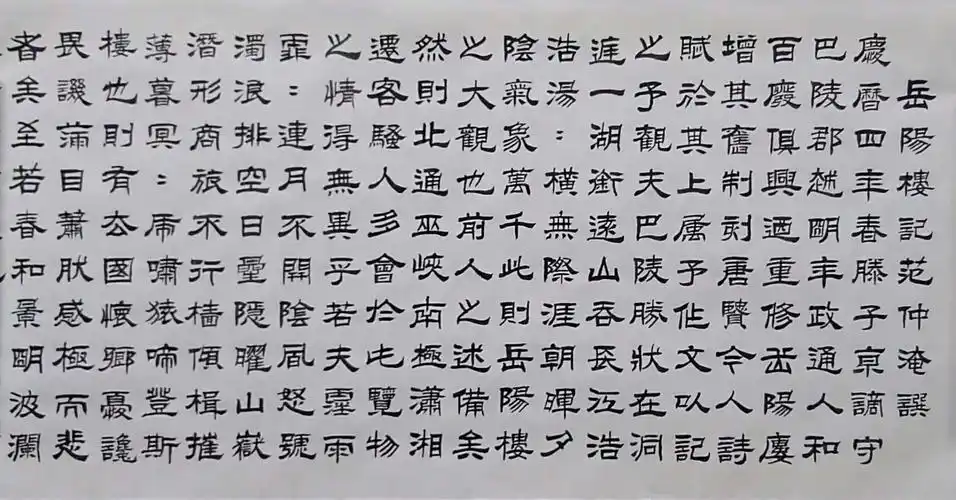 岳陽樓記范仲淹譔
慶曆四年春滕子京謫守
巴陵郡越明年政通人和
百廢俱興迺重修岳陽廔
增其舊制刻唐賢今人詩
賦於其上属予作文以記
之予觀夫巴陵勝狀在洞
庭一湖銜遠山吞長江浩
浩湯：橫無際涯朝暉夕
陰氣象萬千此則岳陽樓
之大觀也前人之述備矣
然則北通巫峽南極瀟湘
遷客騷人多會於此覽物
之情得無異乎若夫霪雨
霏：連月不開陰風怒號
濁浪排空日星隱曜山嶽
潛形商旅不行檣傾楫摧
薄暮冥：虎嘯猿啼登斯
樓也則有去國懷鄉憂讒
畏譏滿目蕭然感極而悲
者矣至若春和景明波瀾